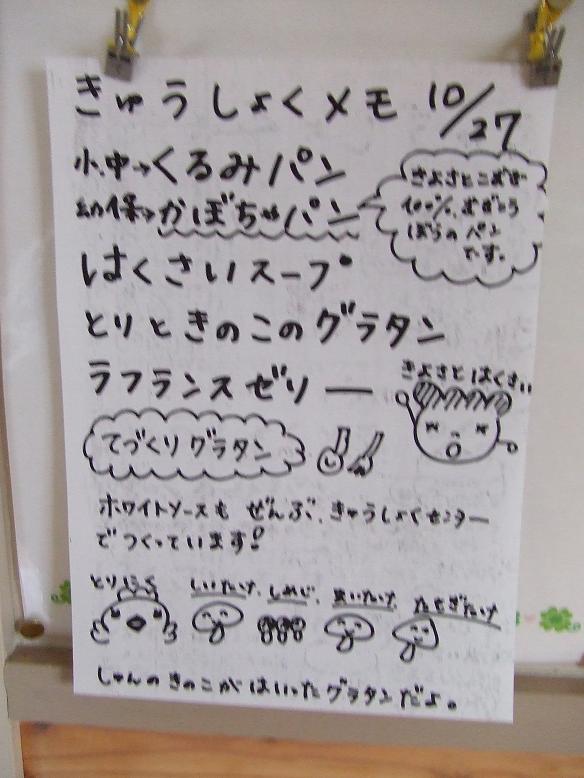 きゅうしょくメモ 10/27
小、中→くるみパン
幼保→かぼちゃパン
きよさとこむぎ
100%、
のパン
です。
はくさいスープ
とりときのこのグラタン
ラフランスゼリー
きよさとはくさい
てづくりグラタン
ホワイトソースも ぜんぶ、きゅうしょくセンター
でつくっています!
とりにく しいたけ、しめじ、まいたけ、たもぎたけ
しゅんのきのこがはいったグラタンだよ。